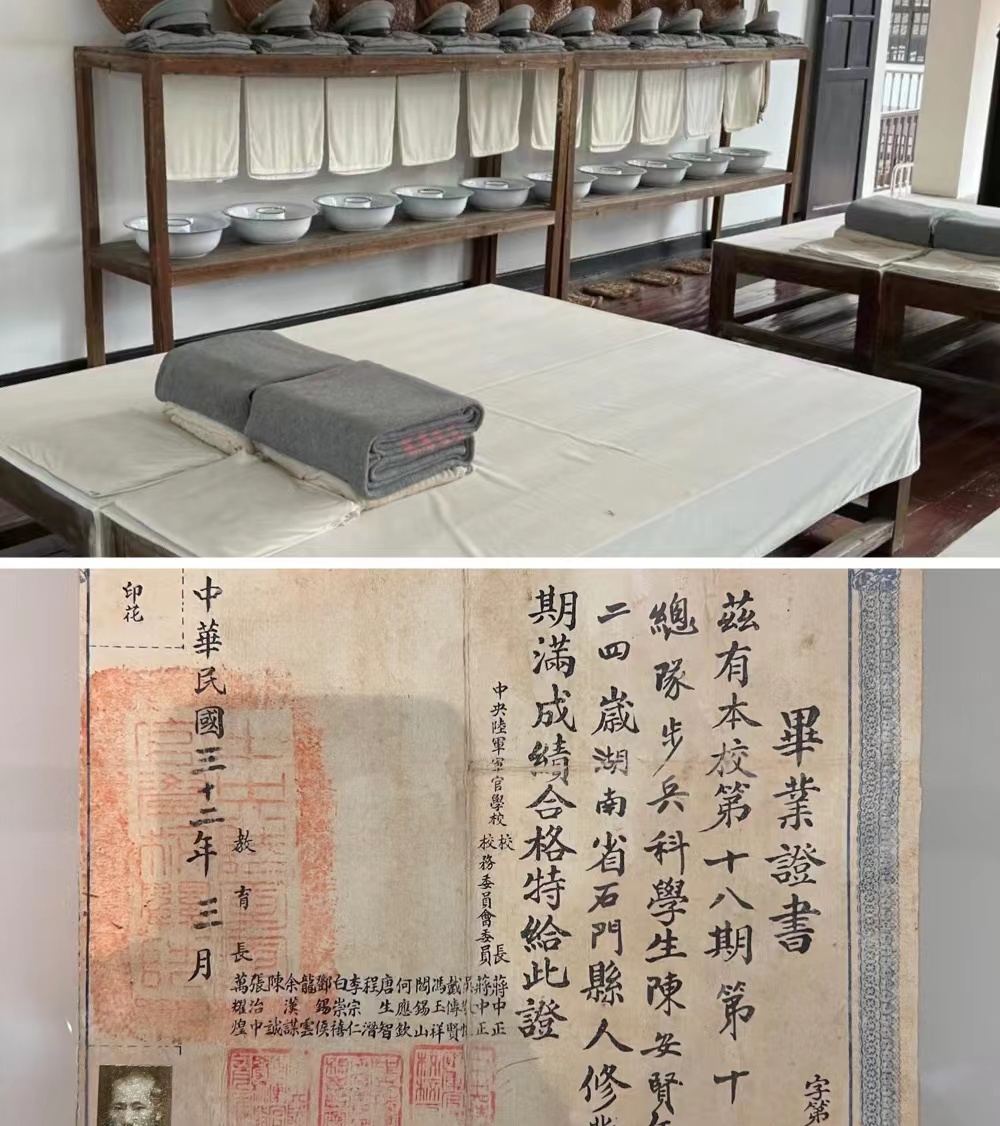 字第
畢業證書
茲有本校第十八期第十
總隊步兵科學生陳安賢年
二四歲湖南省石門縣人修業
期滿成績合格特給此證
中央陸軍軍官學校
校長
蔣中正
校務委員會委員
蔣中正
戴傳賢
馮玉祥
閻錫山
何應欽
唐生智
程潛
李宗仁
白崇禧
鄧錫侯
龍雲
余漢謀
陳誠
張治中
教育長
萬耀煌
中華民國三十二年三月
印花